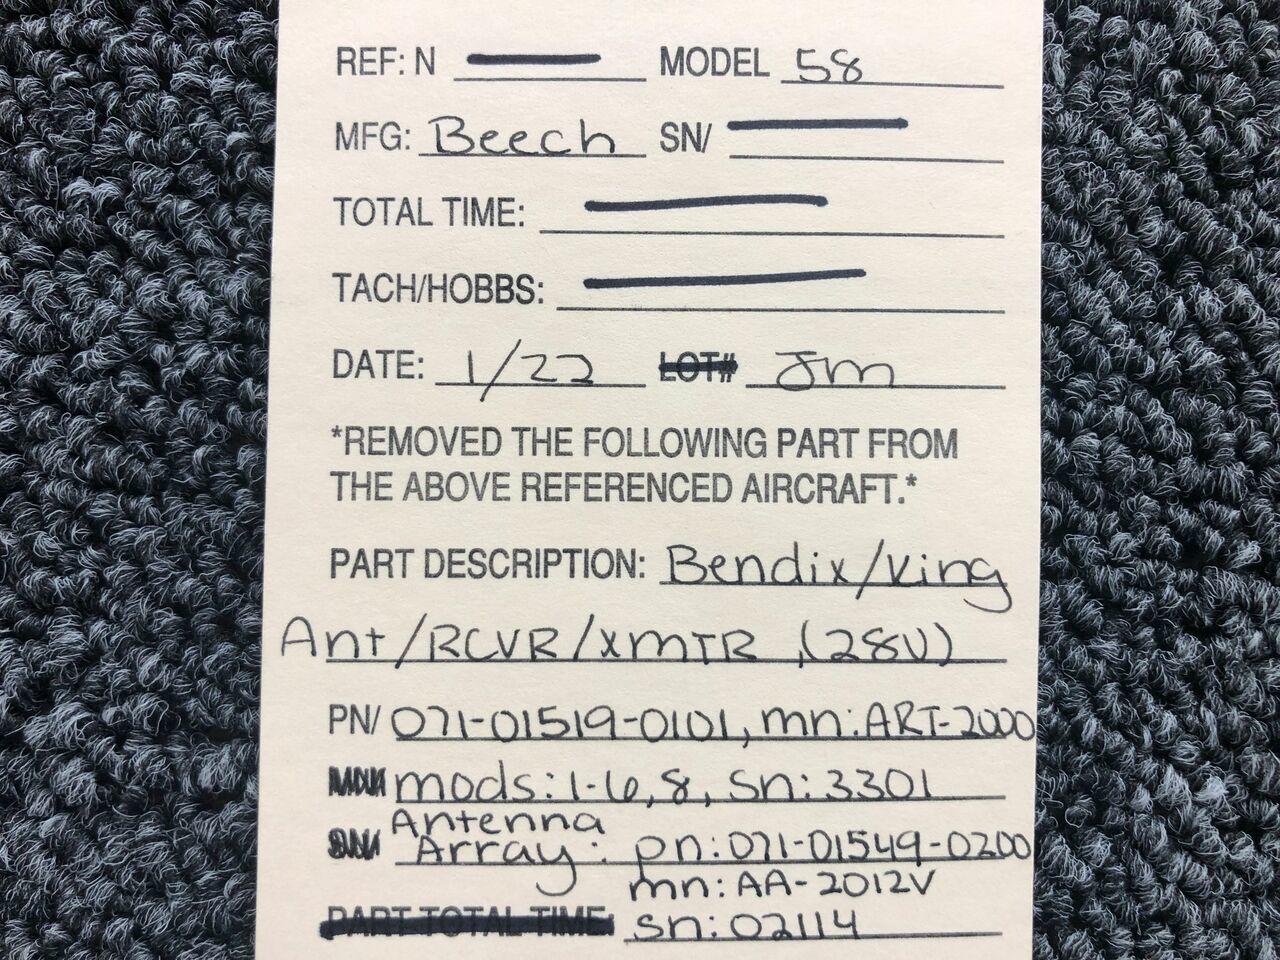 REF: N MODEL 58
MFG: Beech SN/
TOTAL TIME:
TACH/HOBBS:
DATE: 1/22 LOT# Jm
*REMOVED THE FOLLOWING PART FROM
THE ABOVE REFERENCED AIRCRAFT.*
PART DESCRIPTION: Bendix/King
Ant/RCVR/XMTR, (28V)
PN/ 071-01519-0101, mn: ART-2000
mods: 1-6, 8, sn: 3301
Antenna
Array: pn: 071-01549-0200
mn: AA-2012V
PART TOTAL TIME: sn: 02114